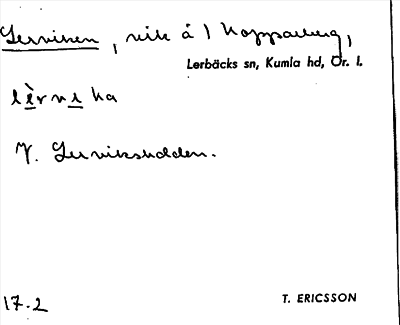 Lerviken, vik å l Kopparberg,
Lerbäcks sn, Kumla hd, Ör. l.
lèrvika
Jf. Lerviksudden.
17-2
T. ERICSSON